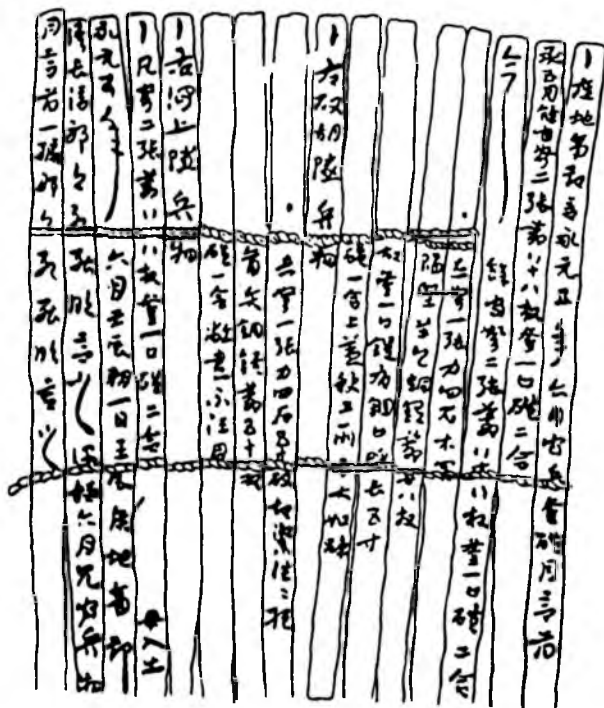 ・廣地南部言永元五年六月官兵釜磑月言簿
承五月餘官弩二張箭八十八枚釜一口磑二合
今餘官弩二張箭八十八枚釜一口磑二合
・赤弩一張力四石木關
陷堅羊頭銅鍭箭卅八枚
故釜一口鍉有錮口呼長五寸
磑一合上蓋缺二所各大如疏
・右破胡隧兵物
・赤弩一張力四石五木破起繳往往絕
盲矢銅鍭箭五十枚
磑一合敝盡不任用
・右澗上隧兵物
・凡弩二張箭八十八枚釜一口磑二合 毋入出
永元五年六月壬辰朔一日壬辰廣地南部
候長信叩頭死罪敢言之謹移六月見官兵物
月言簿一編叩頭死罪敢言之